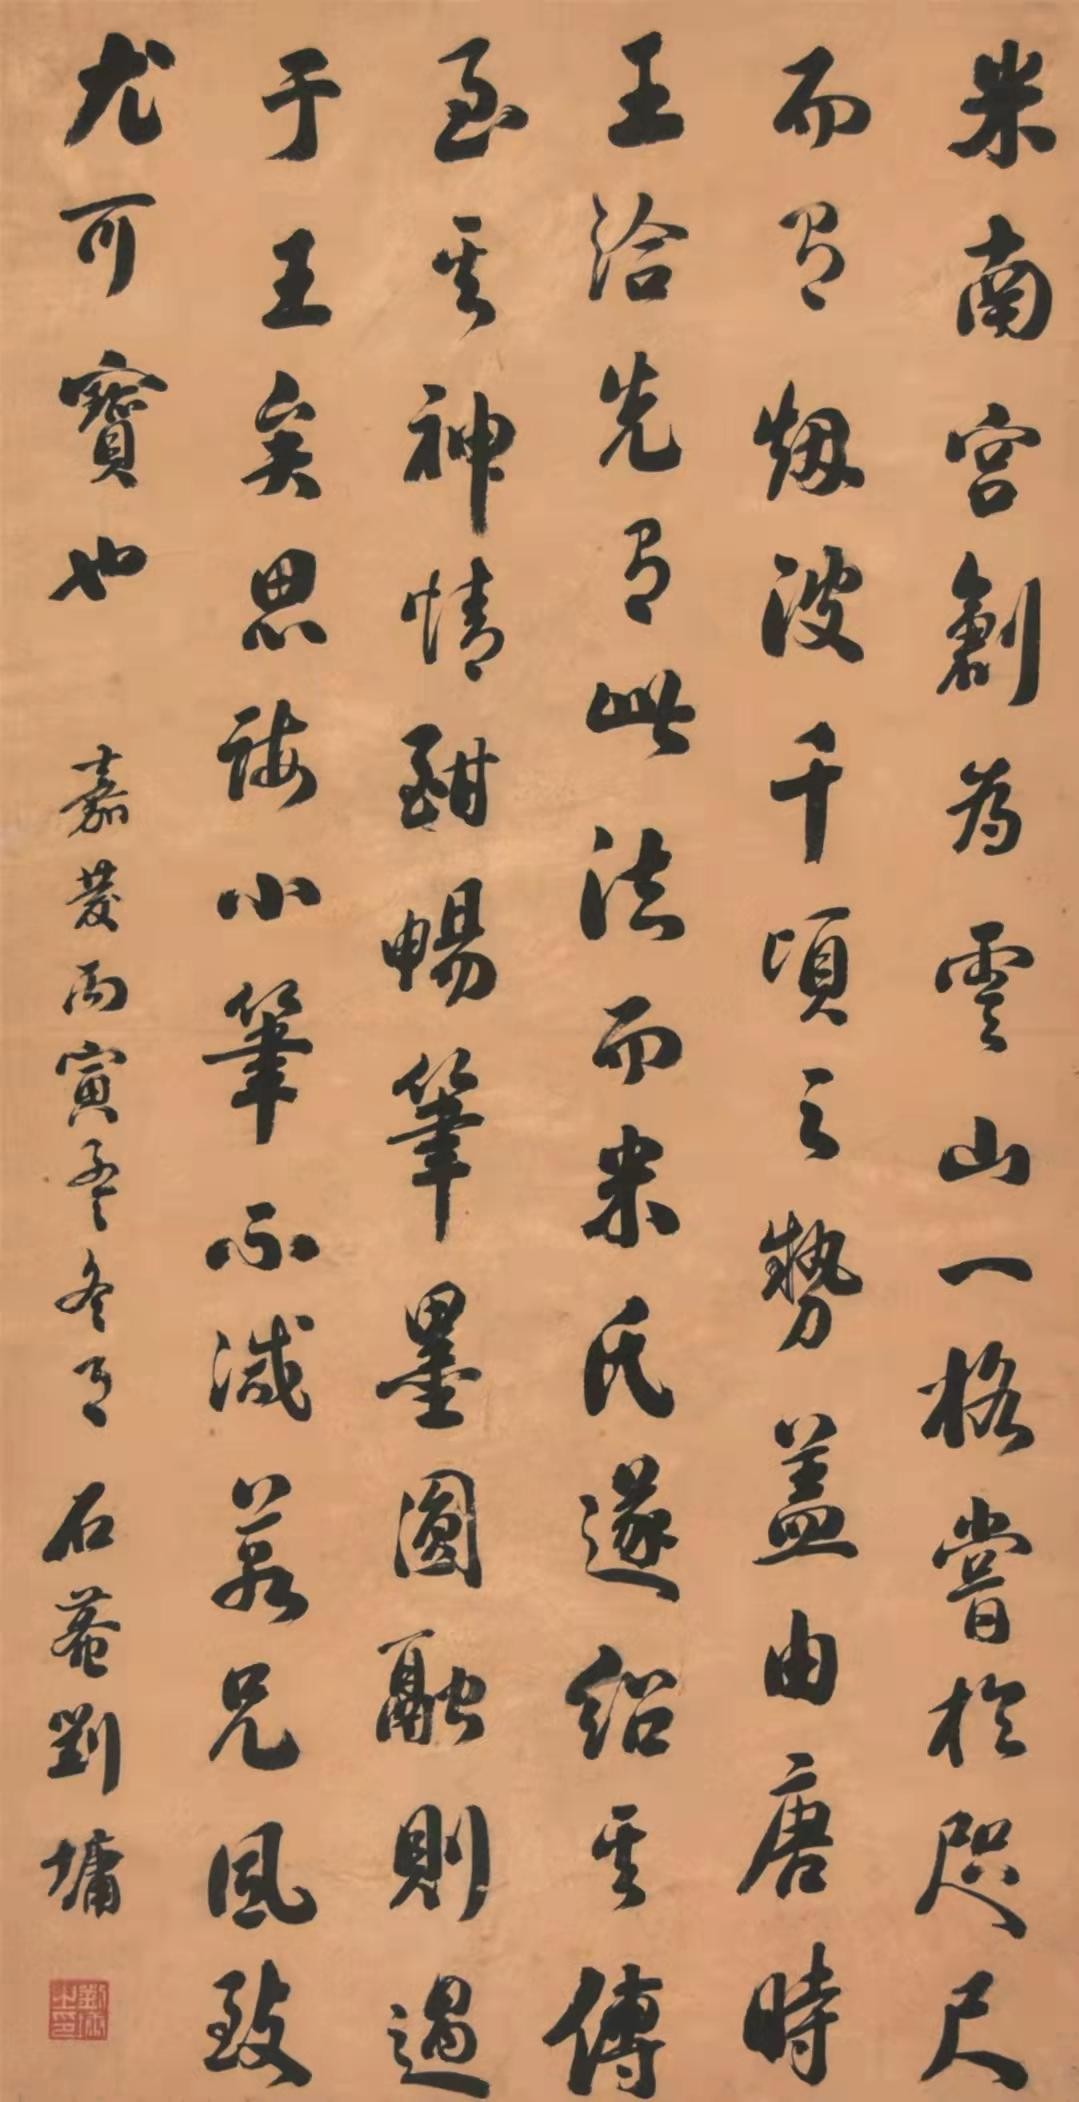 米南宫創為雲山一格嘗於咫尺
而有煙波千頃之勢蓋由唐時
王洽先有此法而米氏遂紹其傳
至其神情酣暢筆墨圓融則過
于王矣思誨小筆不減若兄風致
尤可寶也
嘉慶丙寅孟冬月 石菴劉墉
劉墉之印